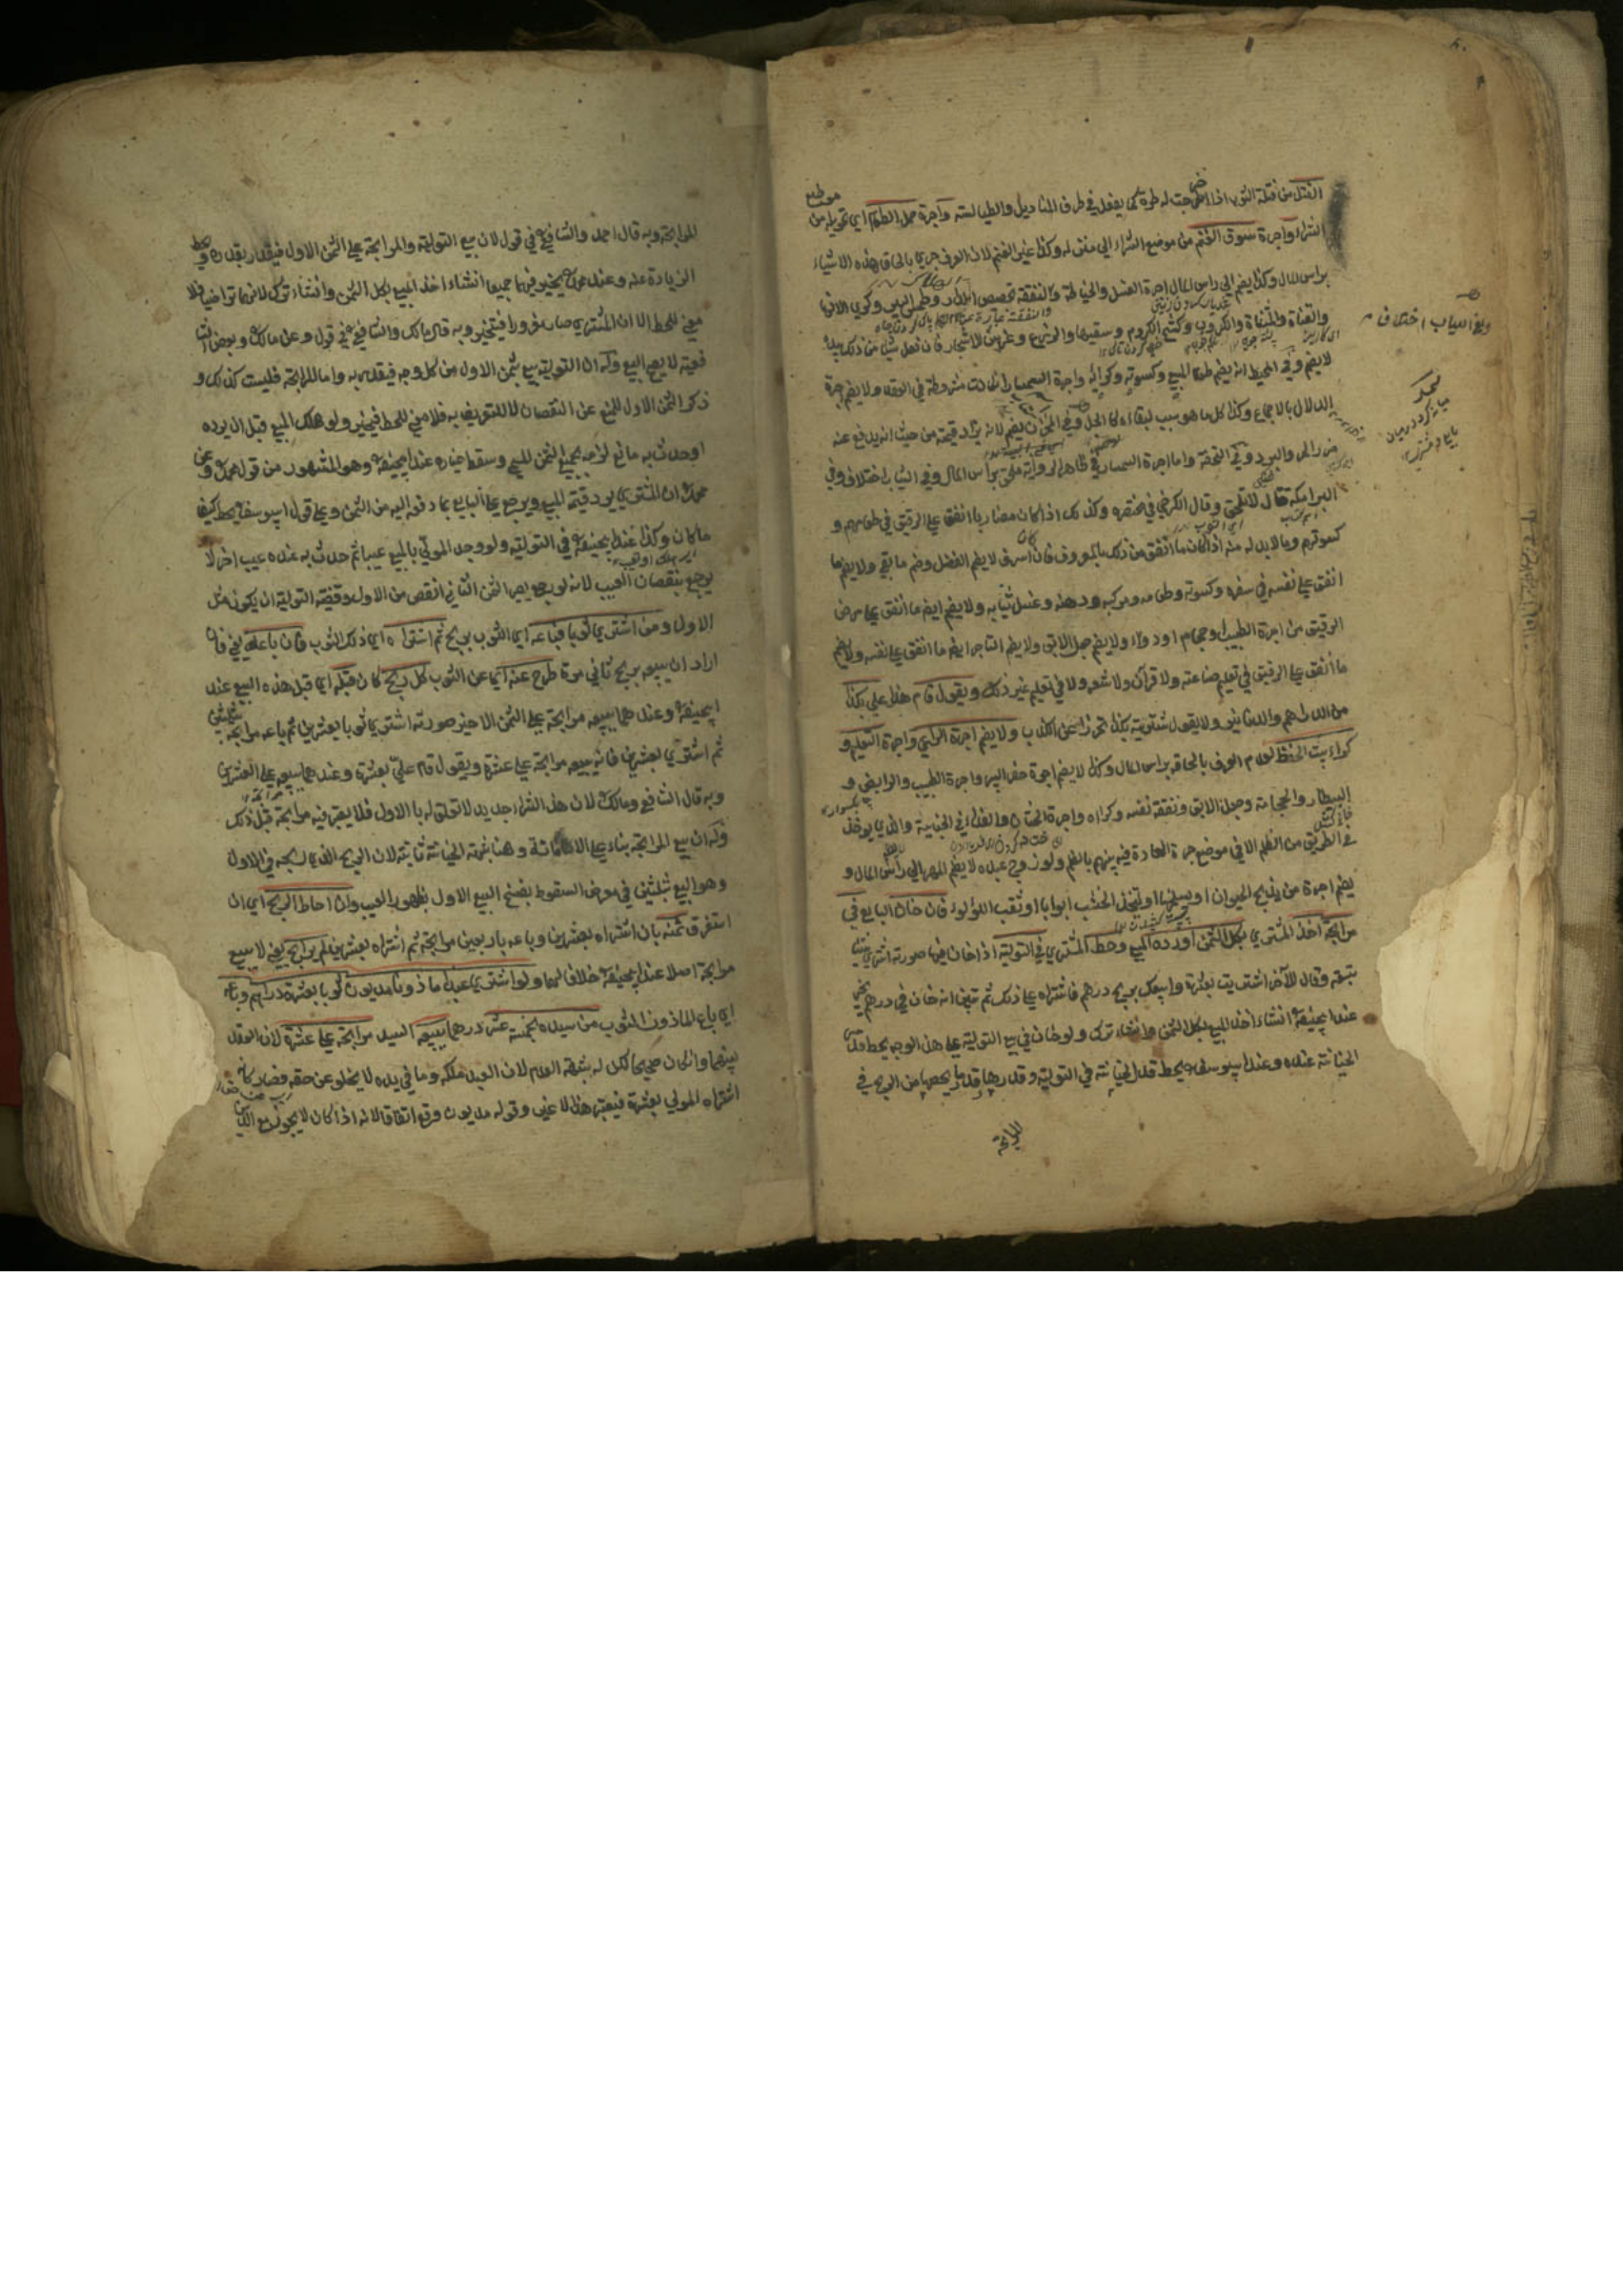 الفتل من فتلة الثوب اذا اخرجت له طرة كما يفعل في طرف المناديل والطيالسة واجرة حمل الطعام اي تحويله من موضع
الشراء واجرة سوق الغنم من موضع الشراء الي منزله وكذا غير الغنم لان العرف جري بالحاق هذه الاشياء
براس المال وكذا يضم الي راس المال اجرة الغسل والخياطة والنفقة تجصيص الدار وطي البير وكري الانهار
والقناة والمسناة والكروب وكسح الكروم وسقيها والزرع وغرس الاشجار فان فعل شيئا من ذلك بيده
لا يضم وفي المحيط انه يضم طعام المبيع وكسوته وكرائه واجرة السمسار ان كانت مشروطة في العقد ولا يضم اجرة
الدلال بالاجماع وكذا كل ما هو سبب لبقائه كالحل وفي المخزن يضم لانه يزاد قيمته من حيث انه يدفع عنه
ضرر الحر والبرد وفي التحفة واما اجرة السمسار في ظاهر الرواية ملحق براس المال وفي الثياب اختلاف وفي
البرامكة قال لا تلحق وقال الكرخي في مختصره وكذلك اذا كان مضاربا انفق علي الرقيق في طعامهم و
كسوتهم وما لا بد له منه اذا كان ما انفق من ذلك بالمعروف فان كان اسرف لا يضم الفضل وضم ما بقي ولا يضم ما
انفق علي نفسه في سفره وكسوته وطعامه ومركبه ودهنه وغسل ثيابه ولا يضم ايضا ما انفق علي مرض
الرقيق من اجرة الطبيب وحجام او دواء ولا يضم جعل الآبق ولا يضم التاجر ايضا ما انفق علي نفسه ولا يضم
ما انفق علي الرقيق في تعليم صناعته ولا قرآن ولا شعر ولا في تعليم غير ذلك ويقول قام هذا علي بكذا
من الدراهم والدنانير ولا يقول شتريته بكذا تحرزا عن الكذب ولا يضم اجرة الراعي واجرة التعليم و
كراء بيت الحفظ لعدم العرف بالحاقه براس المال وكذا لا يضم اجرة حفر البير واجرة الطبيب والرايض و
البيطار والحجامة وجعل الآبق ونفقة نفسه وكراه واجرة الختان والفداء في الجناية والذي يوخذ
في الطريق من الظلم الا في موضع جرت العادة فيه بينهم بالضم ولو زوج عبده لا يضم المهر الي راس المال و
يضم اجرة من يذبح الحيوان او يسلخها او يتخذ الخشب ابوابا او ثقب اللؤلؤ فان خان البايع في
مرابحة اخذ المشتري بكل الثمن او رده المبيع وحط المشتري في التولية اذا خان فيها صورته اشتري شيئا
بتسعة وقال لآخر اشتريت بعشرة وابيعك بربح درهم فاشتراه علي ذلك ثم تبين انه خان في درهم يخير
عند ابي حنيفة ان شاء اخذ المبيع بكل الثمن وان شاء ترك ولو خان في بيع التولية علي هذا الوجه يحط قدر
الخيانة عنده وعند ابي يوسف يحط قدر الخيانة في التولية وقدرها وقدر ما يخصها من الربح في
المرابحة
وفي الثياب اختلاف
للمرابحة وبه قال احمد والشافعي في قول لان بيع التولية والمرابحة علي الثمن الاول فيقدر بقدره ويحط
الزيادة عنه وعند محمد يخير فيهما جميعا ان شاء اخذ المبيع بكل الثمن وان شاء ترك لانهما تراضيا فلا
معني للحط الا ان المشتري صار مغرورا فيتخير وبه قال مالك والشافعي في قول وعن مالك وبعض الشا
فعية لا يصح البيع وله ان التولية بيع بثمن الاول من كل وجه فيقدر به واما المرابحة فليست كذلك و
ذكر الثمن الاول للمنع عن النقصان لا للتعريف به فلا معني للحط فيخير ولو هلك المبيع قبل ان يرده
او حدث به مانع لزمه بجميع الثمن المسمي وسقط خياره عند ابي حنيفة وهو المشهور من قول محمد وعن
محمد ان المشتري يرد قيمة المبيع ويرجع علي البايع بما دفعه اليه من الثمن وعلي قول ابي يوسف يحط كيف
ما كان وكذا عند ابي حنيفة في التولية ولو وجد المولي بالمبيع عيبا ثم حدث به عنده عيب اخر لا
يرجع بنقصان العيب لانه لو رجع يصير الثمن الثاني انقص من الاول وقضية التولية ان يكون مثل
الاول ومن اشتري ثوبا فباعه اي الثوب بربح ثم اشتراه اي ذلك الثوب فان باعه يعني فان
اراد ان يبيعه بربح ثاني مرة طرح عنه اي عن الثوب كل ربح كان قبله اي قبل هذه البيع عند
ابي حنيفة وعندهما يبيعه مرابحة علي الثمن الاخير صورته اشتري ثوبا بعشرين ثم باعه مرابحة بثلثين
ثم اشتري بعشرين فانه يبيعه مرابحة علي عشرة ويقول قام علي بعشرة وعندهما يبيعه علي العشرين
وبه قال الشافعي ومالك لان هذا الشراء جديد لا تعلق له بالاول فلا يعتبر فيه مرابحة قبل ذلك
وله ان بيع المرابحة بناء علي الامانة وهنا شبهة الخيانة ثابتة لان الربح الذي ربحه في الاول
وهو البيع بثلثين في معرض السقوط بفسخ البيع الاول بظهور العيب وان احاط الربح اي ان
استغرق ثمنه بان اشتراه بعشرين وباعه باربعين مرابحة ثم اشتراه بعشرين لم يرابح يعني لا يبيع
مرابحة اصلا عند ابي حنيفة خلافا لهما ولو اشتري عبد ماذون مديون ثوبا بعشرة دراهم وباعه
اي باع الماذون الثوب من سيده بخمسة عشر درهما يبيعه السيد مرابحة علي عشرة لان العقد
بينهما وان كان صحيحا لكن له شبهة العدم لان العبد ملكه وما في يده لا يخلو عن حقه فصار كانه
اشتراه المولي بعشرة فيعتبر هذا لا غير وقوله مديون وقع اتفاقا لانه اذا كان لا يجوز مع الدين